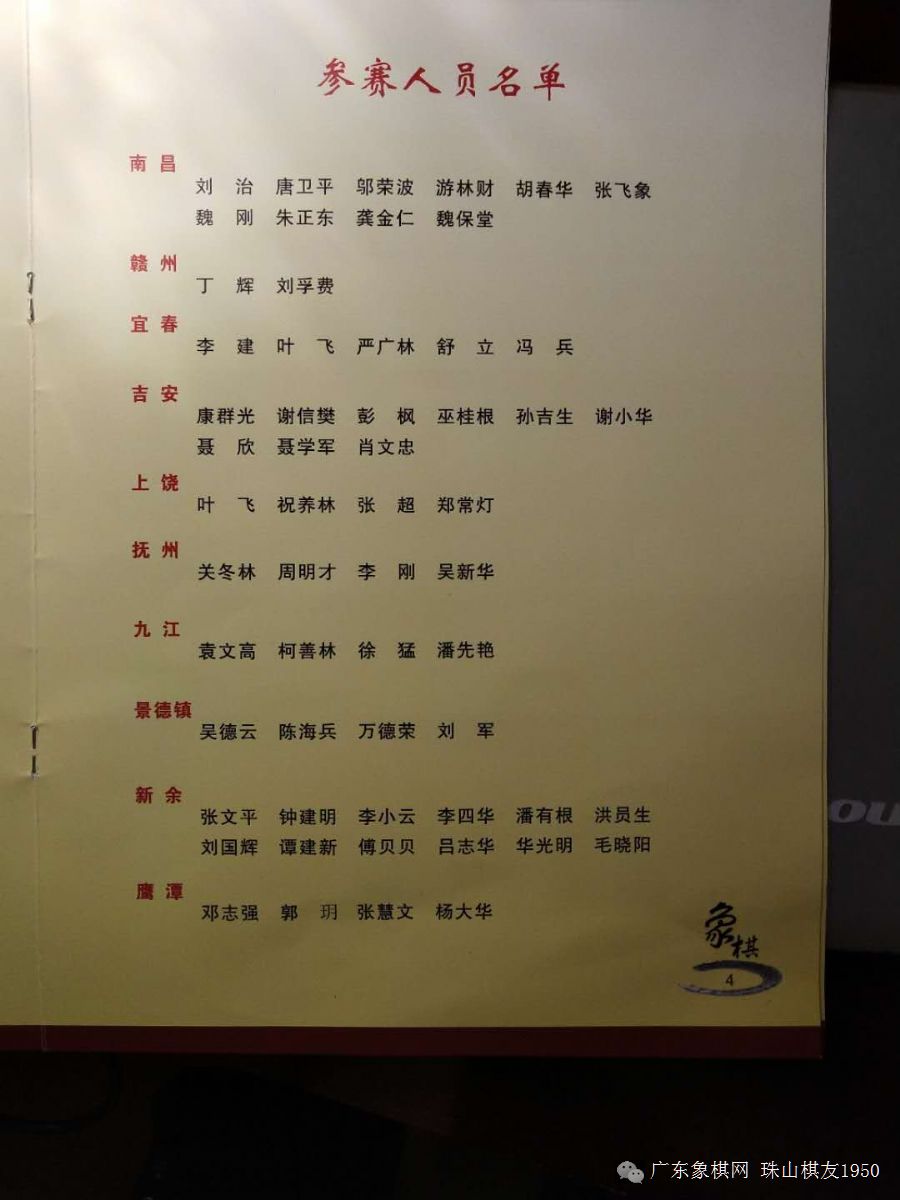 参赛人员名单
南昌
刘治 唐卫平 邬荣波 游林财 胡春华 张飞象
魏刚 朱正东 龚金仁 魏保堂
赣州
丁辉 刘孚费
宜春
李建 叶飞 严广林 舒立 冯兵
吉安
康群光 谢信樊 彭枫 巫桂根 孙吉生 谢小华
聂欣 聂学军 肖文忠
上饶
叶飞 祝养林 张超 郑常灯
抚州
关冬林 周明才 李刚 吴新华
九江
袁文高 柯善林 徐猛 潘先艳
景德镇
吴德云 陈海兵 万德荣 刘军
新余
张文平 钟建明 李小云 李四华 潘有根 洪员生
刘国辉 谭建新 傅贝贝 吕志华 华光明 毛晓阳
鹰潭
邓志强 郭玥 张慧文 杨大华
象棋
4
ou
广东象棋网 珠山棋友1950